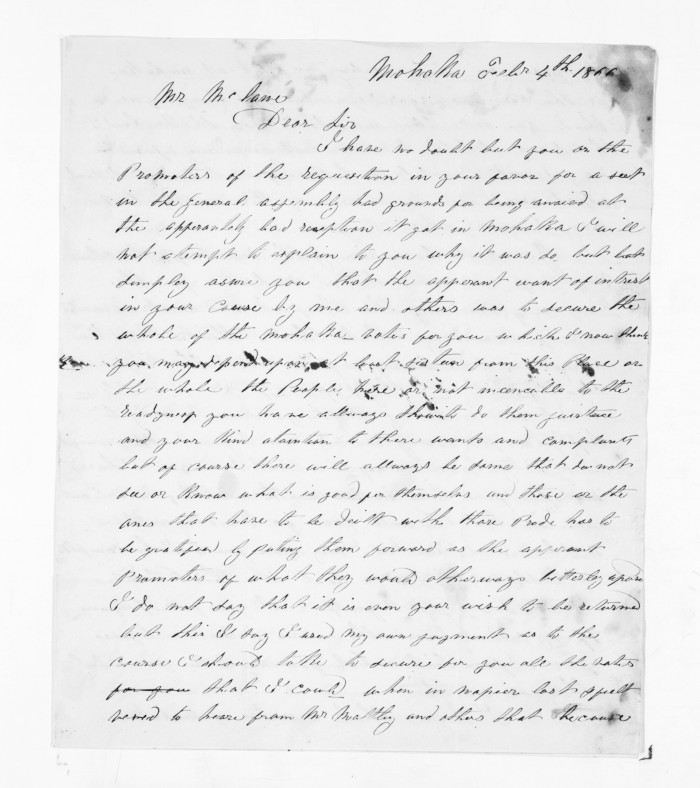 Mohaka Febr 4th 1866
Mr McLane
Dear Sir
I have no doubt but you or the
Promoters of the requesition in your favor for a seat
in the General assembly had grounds for being anoied at
the apperantly bad reseption it got in Mohaka I will
not atempt to explain to you why it was so, but but
simpley asure you that the apperant want of intrest
in your Cause by me and others was to secure the
whole of the Mohaka votes for you which I now think
you may depend upon at least from this Place on
the whole the People here or not incencible to the
readyness you have allways to do them justace
and your Kind atention to there wants and complants
but of course there will allways be some that do not
see or Know what is good for themselvs and those or the
ones that have to be dailt with there Pride has to
be by Puting them forward as the apperant
Promoters of what they would otherways betterly
I do not say that it is even your wish to be returned
but this I say I used my own jugment as to the
course I should take to secure for you all the votes
for you that I could when in napier last I felt
to heare from Mr Maltby and others that because